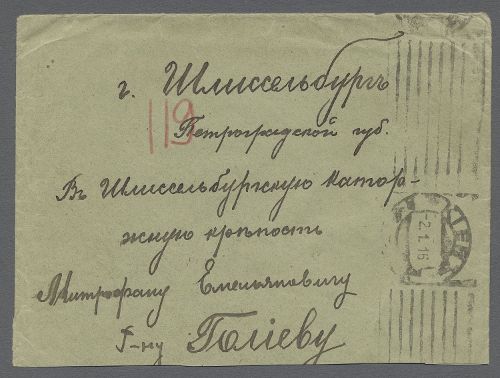 г. Шлиссельбургъ
119
Петроградской губ.
Въ Шлиссельбургскую катор-
жную крѣпость
Митрофану Емельяновичу
Г-ну Голіеву
2.1.16